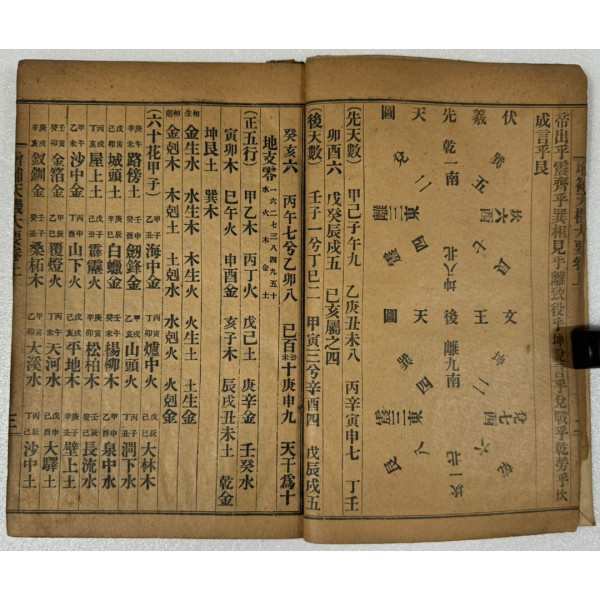 增補天機大要卷上
帝出乎震齊乎巽相見乎離致役乎坤說言乎兌戰乎乾勞乎坎
成言乎艮
伏羲先天圖
乾一南
兌二
巽五
離三東
坎六西
震四
艮七
坤八北
文王後天圖
離九南
巽四
坤二
震三東
兌七西
艮八
乾六
坎一北
(先天數) 甲己子午九 乙庚丑未八 丙辛寅申七 丁壬
卯酉六 戊癸辰戌五 巳亥屬之四
(後天數) 壬子一兮丁巳二 甲寅三兮辛酉四 戊辰戌五
癸亥六 丙午七兮乙卯八 己百丑未十庚申九 天干爲十
地支零 一六水 二七火 三八木 四九金 五十土
(正五行) 甲乙木 丙丁火 戊己土 庚辛金 壬癸水
寅卯木 巳午火 申酉金 亥子水 辰戌丑未土 乾金
坤艮土 巽木
相生 金生水 水生木 木生火 火生土 土生金
相剋 金剋木 木剋土 土剋水 水剋火 火剋金
(六十花甲子) 甲子乙丑海中金 丙寅丁卯爐中火 戊辰己巳大林木
庚午辛未路傍土 壬申癸酉劍鋒金 甲戌乙亥山頭火 丙子丁丑澗下水
戊寅己卯城頭土 庚辰辛巳白蠟金 壬午癸未楊柳木 甲申乙酉泉中水
丙戌丁亥屋上土 戊子己丑霹靂火 庚寅辛卯松柏木 壬辰癸巳長流水
甲午乙未沙中金 丙申丁酉山下火 戊戌己亥平地木 庚子辛丑壁上土
壬寅癸卯金箔金 甲辰乙巳覆燈火 丙午丁未天河水 戊申己酉大驛土
庚戌辛亥釵釧金 壬子癸丑桑柘木 甲寅乙卯大溪水 丙辰丁巳沙中土
增補天機大要卷上 三